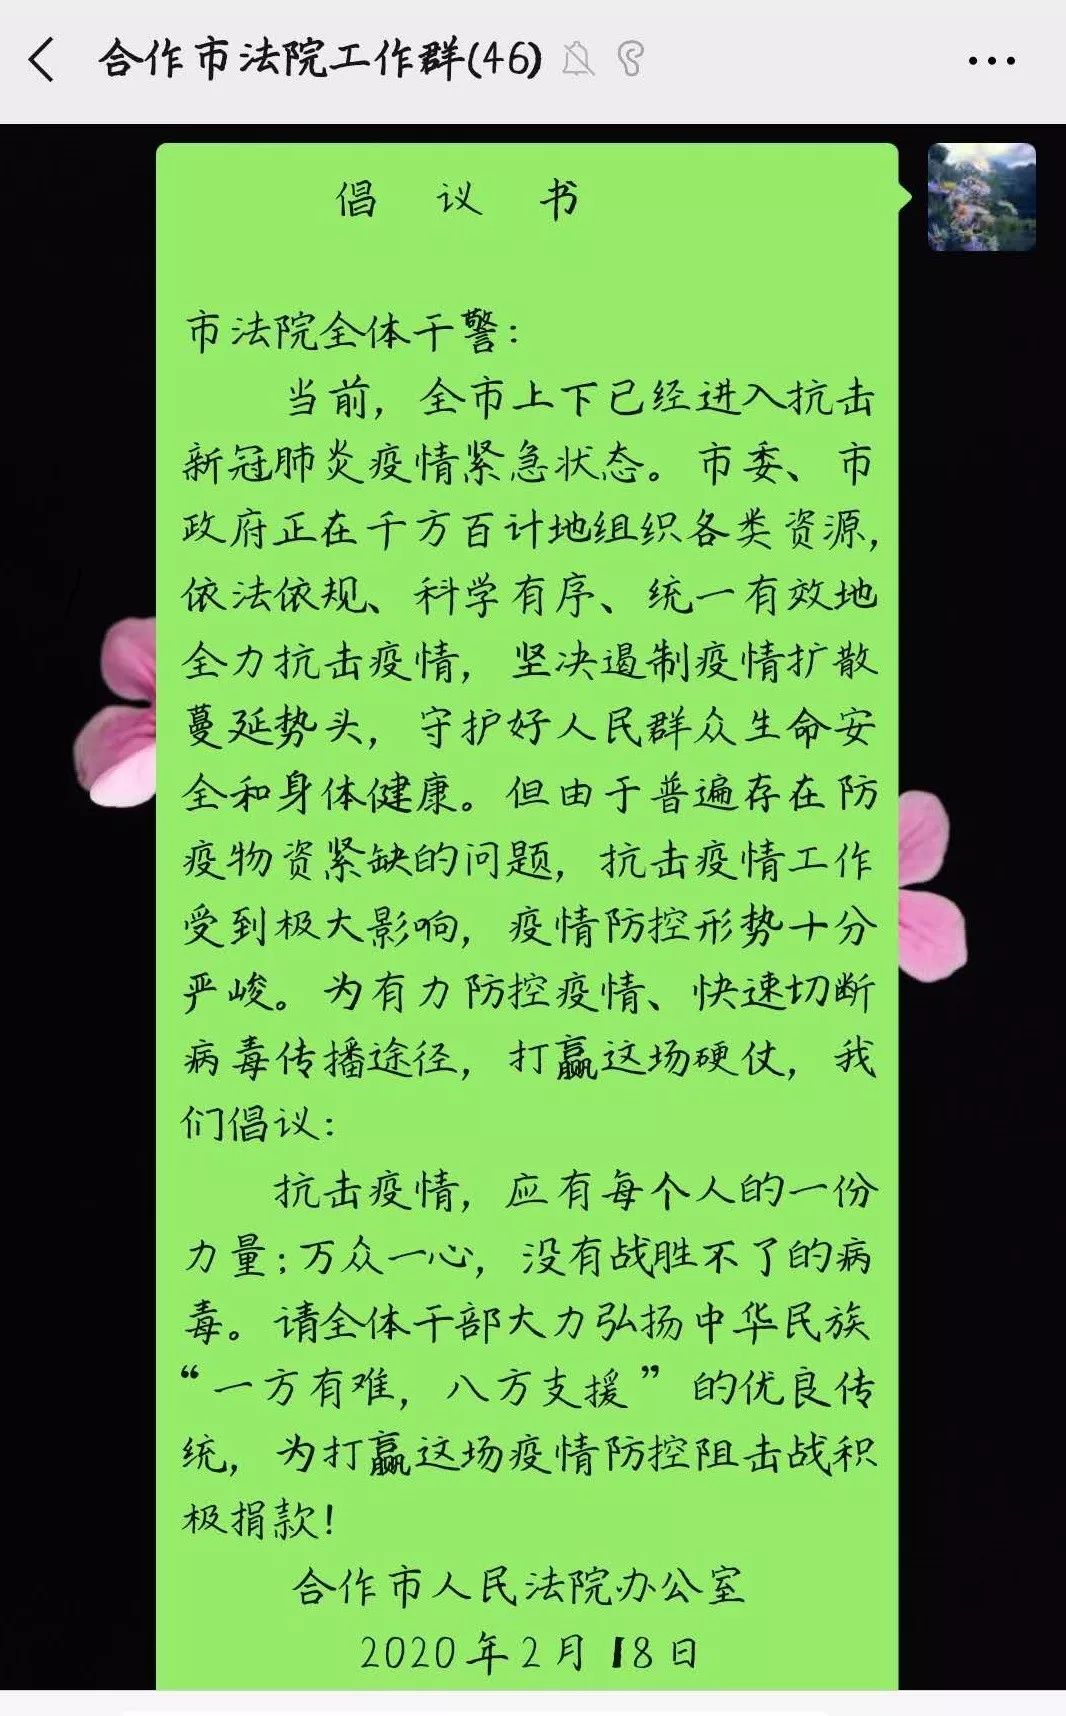 合作市法院工作群(46)
倡 议 书
市法院全体干警：
当前，全市上下已经进入抗击
新冠肺炎疫情紧急状态。市委、市
政府正在千方百计地组织各类资源，
依法依规、科学有序、统一有效地
全力抗击疫情，坚决遏制疫情扩散
蔓延势头，守护好人民群众生命安
全和身体健康。但由于普遍存在防
疫物资紧缺的问题，抗击疫情工作
受到极大影响，疫情防控形势十分
严峻。为有力防控疫情、快速切断
病毒传播途径，打赢这场硬仗，我
们倡议：
抗击疫情，应有每个人的一份
力量；万众一心，没有战胜不了的病
毒。请全体干部大力弘扬中华民族
“一方有难，八方支援”的优良传
统，为打赢这场疫情防控阻击战积
极捐款！
合作市人民法院办公室
2020年2月18日